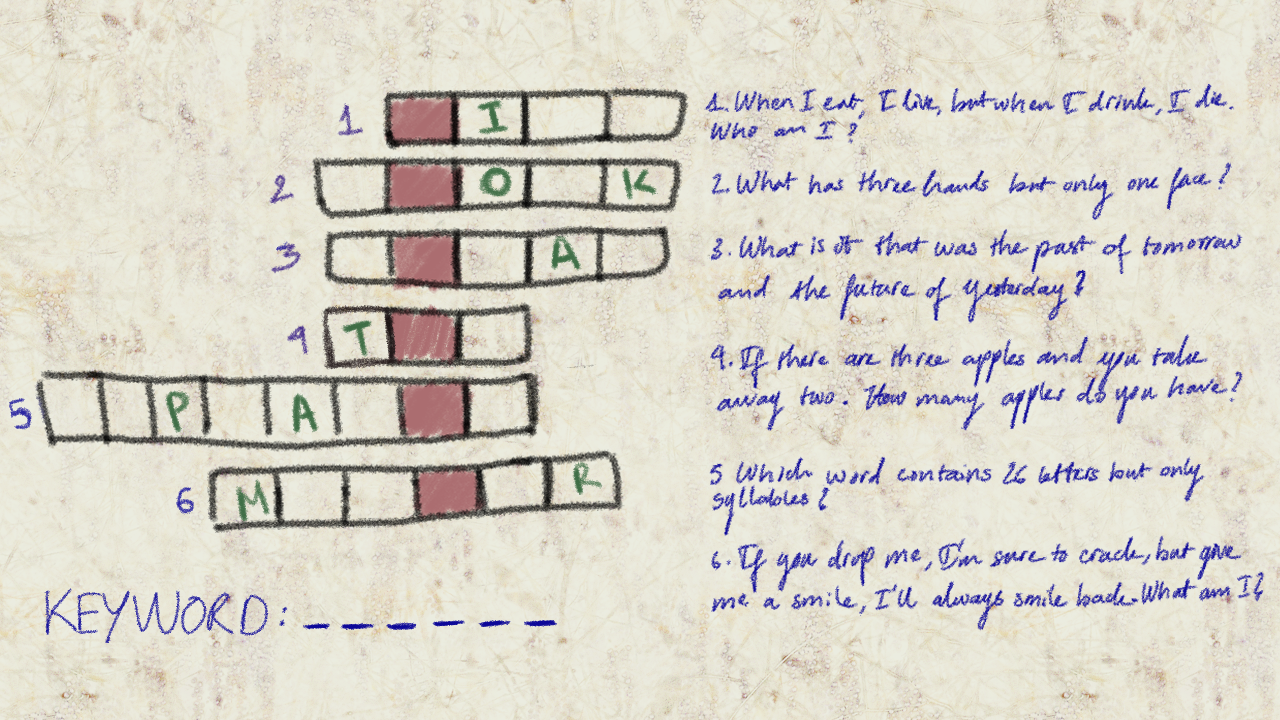 1 I
1. When I eat, I live, but when I drink, I die.
Who am I?
2 O K
2. What has three hands but only one face?
3 A
3. What is it that was the past of tomorrow
and the future of yesterday?
4 T
4. If there are three apples and you take
away two. How many apples do you have?
5 P A
5 Which word contains 26 letters but only
syllables?
6 M R
6. If you drop me, I'm sure to crack, but give
me a smile, I'll always smile back. What am I?
KEYWORD: _ _ _ _ _ _